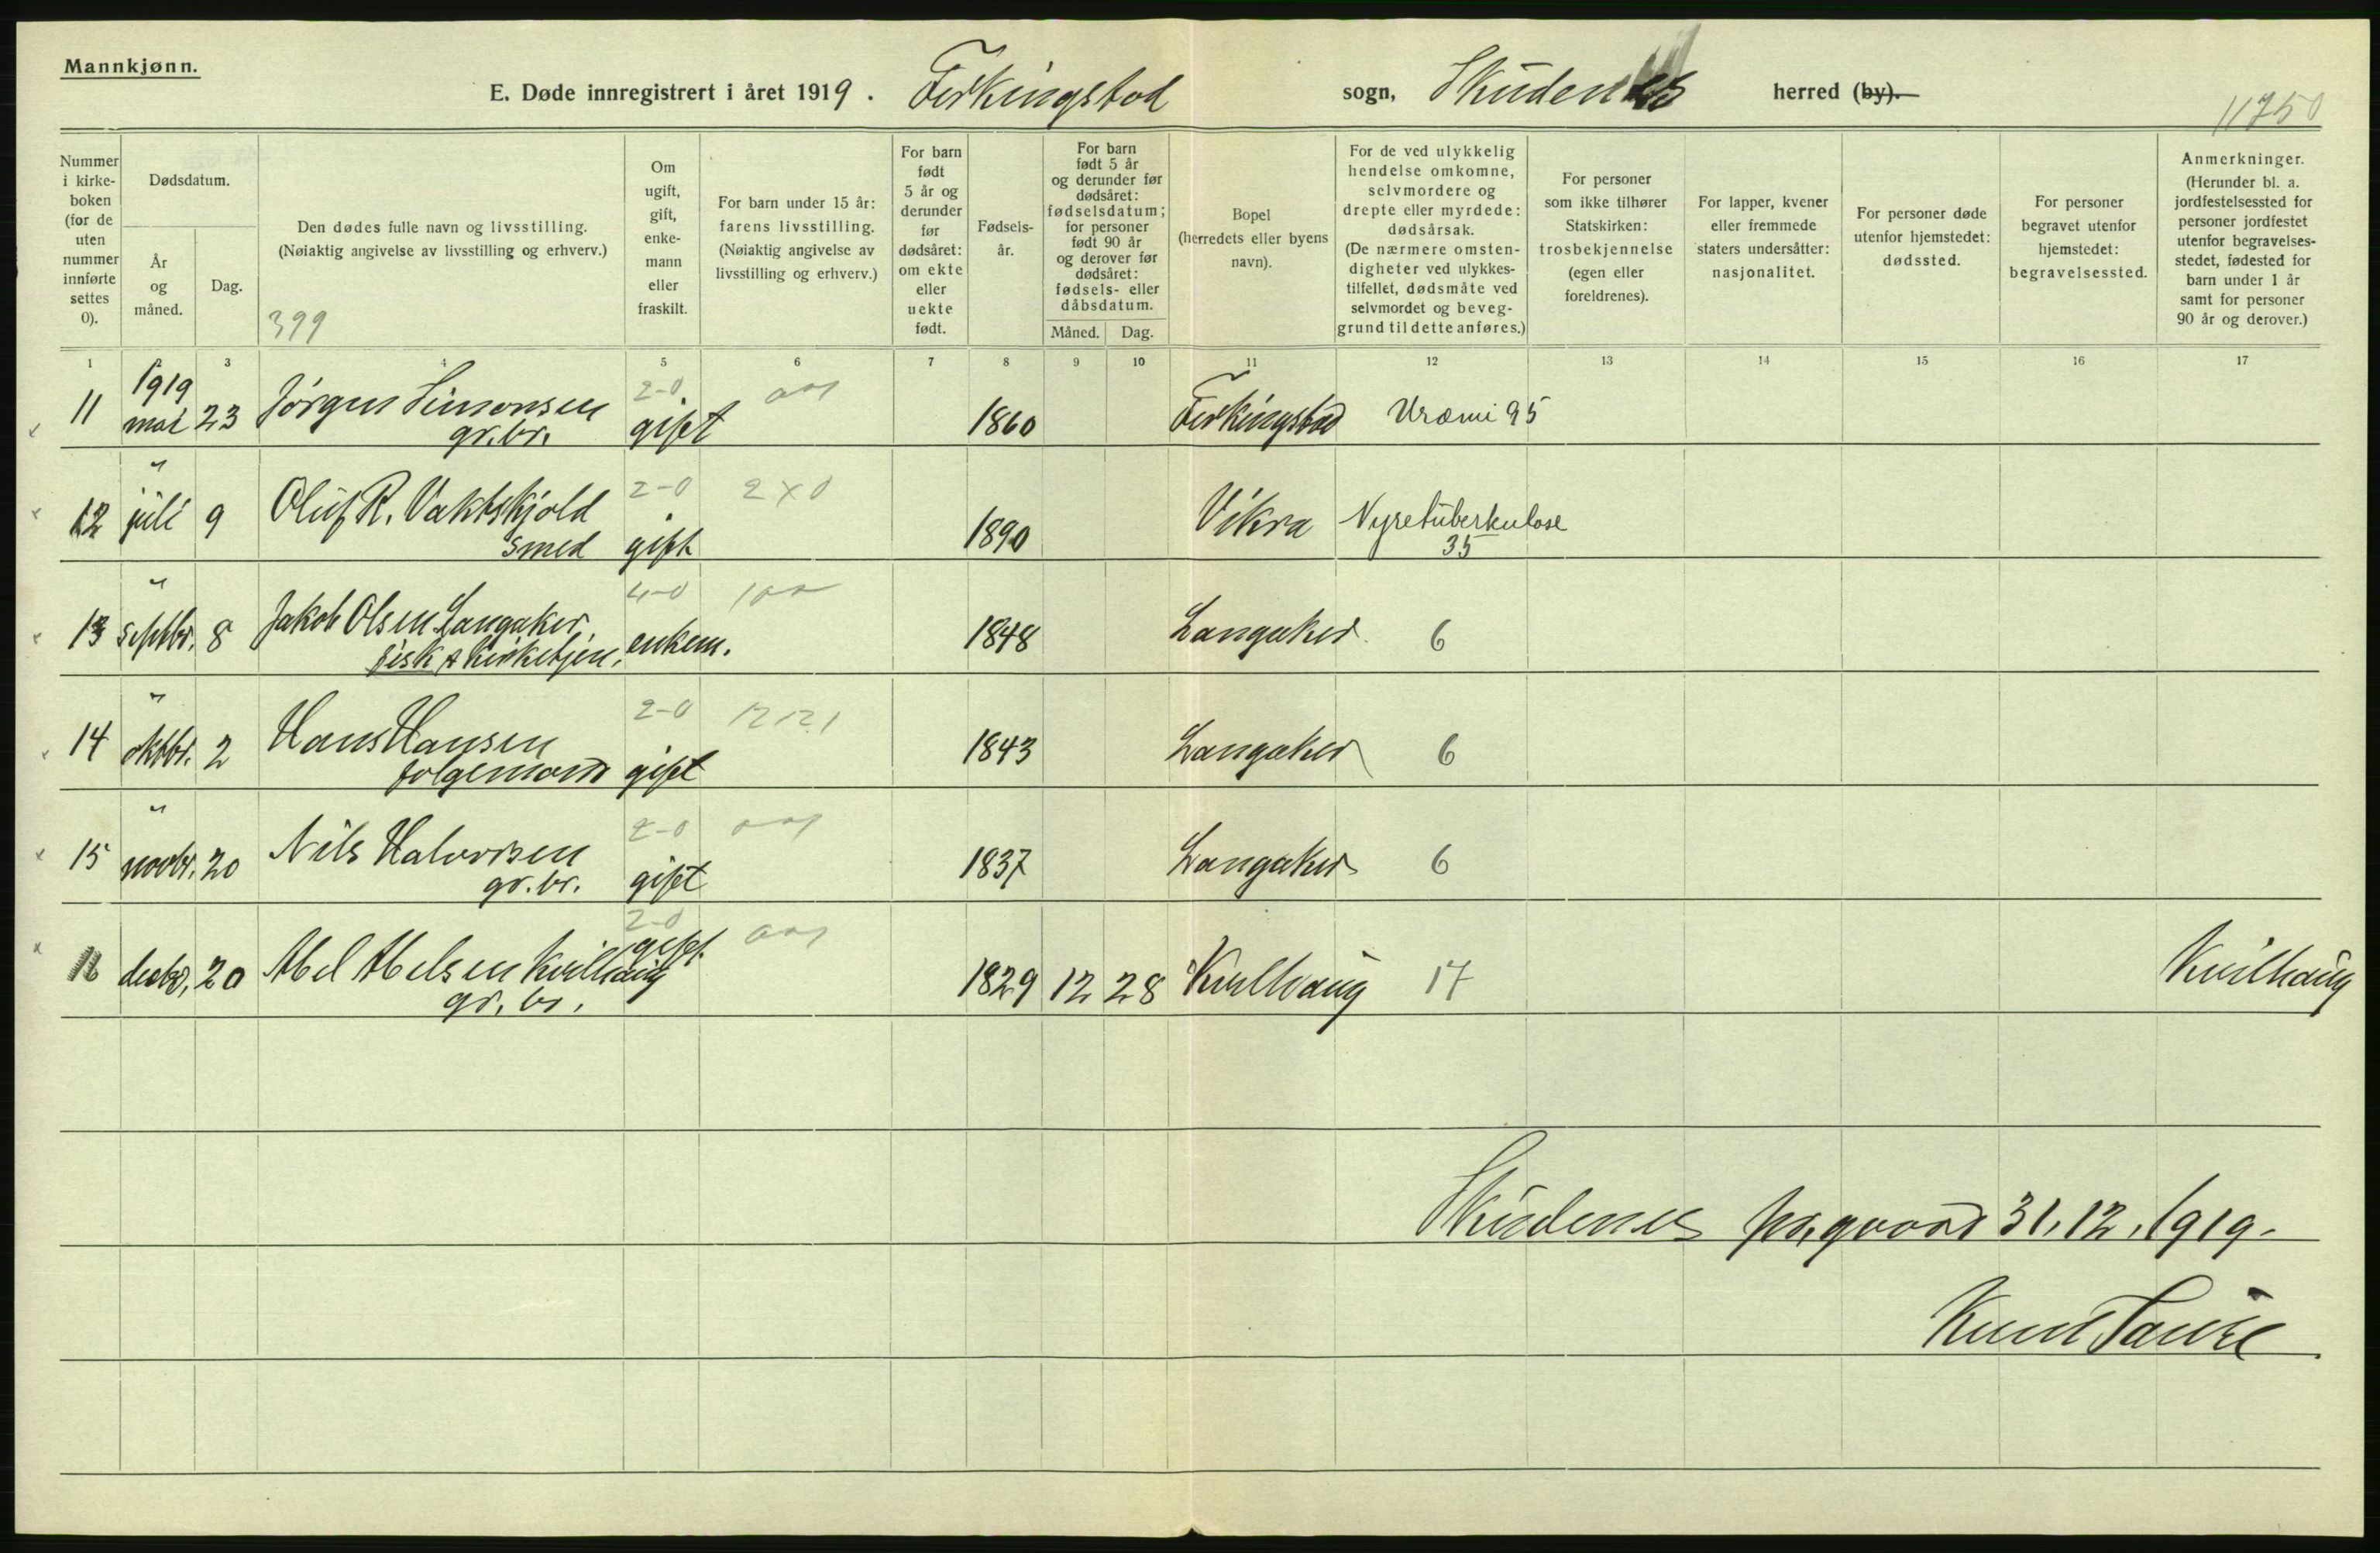 Mannkjønn.
E. Døde innregistrert i året 1919. Ferkingstad sogn, Skudenes herred (by).
11750
Nummer i kirkeboken (for de uten nummer innførte settes 0).
Dødsdatum.
År og måned.
Dag.
Den dødes fulle navn og livsstilling.
(Nøiaktig angivelse av livsstilling og erhverv.)
399
Om ugift, gift, enkemann eller fraskilt.
For barn under 15 år: farens livsstilling.
(Nøiaktig angivelse av livsstilling og erhverv.)
For barn født 5 år og derunder før dødsåret: om ekte eller uekte født.
Fødselsår.
For barn født 5 år og derunder før dødsåret: fødselsdatum; for personer født 90 år og derover før dødsåret: fødsels- eller dåbsdatum.
Måned. Dag.
Bopel (herredets eller byens navn).
For de ved ulykkelig hendelse omkomne, selvmordere og drepte eller myrdede: dødsårsak.
(De nærmere omstendigheter ved ulykkestilfellet, dødsmåte ved selvmordet og beveggrund til dette anføres.)
For personer som ikke tilhører Statskirken: trosbekjennelse (egen eller foreldrenes).
For lapper, kvener eller fremmede staters undersåtter: nasjonalitet.
For personer døde utenfor hjemstedet: dødssted.
For personer begravet utenfor hjemstedet: begravelsessted.
Anmerkninger.
(Herunder bl. a. jordfestelsessted for personer jordfestet utenfor begravelsesstedet, fødested for barn under 1 år samt for personer 90 år og derover.)
1 2 3 4 5 6 7 8 9 10 11 12 13 14 15 16 17
1919 2-0
11 mai 23 Jørgen Simonsen gift 1860 Ferkingstad Uræmi 95
gr.br.
" 2-0 2x0
12 juli 9 Oluf R. Vaktskjold 1890 Vikra Nyretuberkulose
smed gift 35
" 4-0
13 septbr. 8 Jakob Olsen Langåker enkem. 1848 Langåker 6
fisk & kirketjen.
" 2-0
14 oktbr. 2 Hans Hansen 1843 Langåker 6
folgemann gift
" 2-0
15 novbr. 20 Nils Halvorsen gift 1837 Langåker 6
gr.br.
2-0
16 decbr. 20 Abel Abelsen Kvilhaug gift 1829 12 28 Kvilhaug 17 Kvilhaug
gr.br.
Skudenes pr.gaard 31.12.1919.